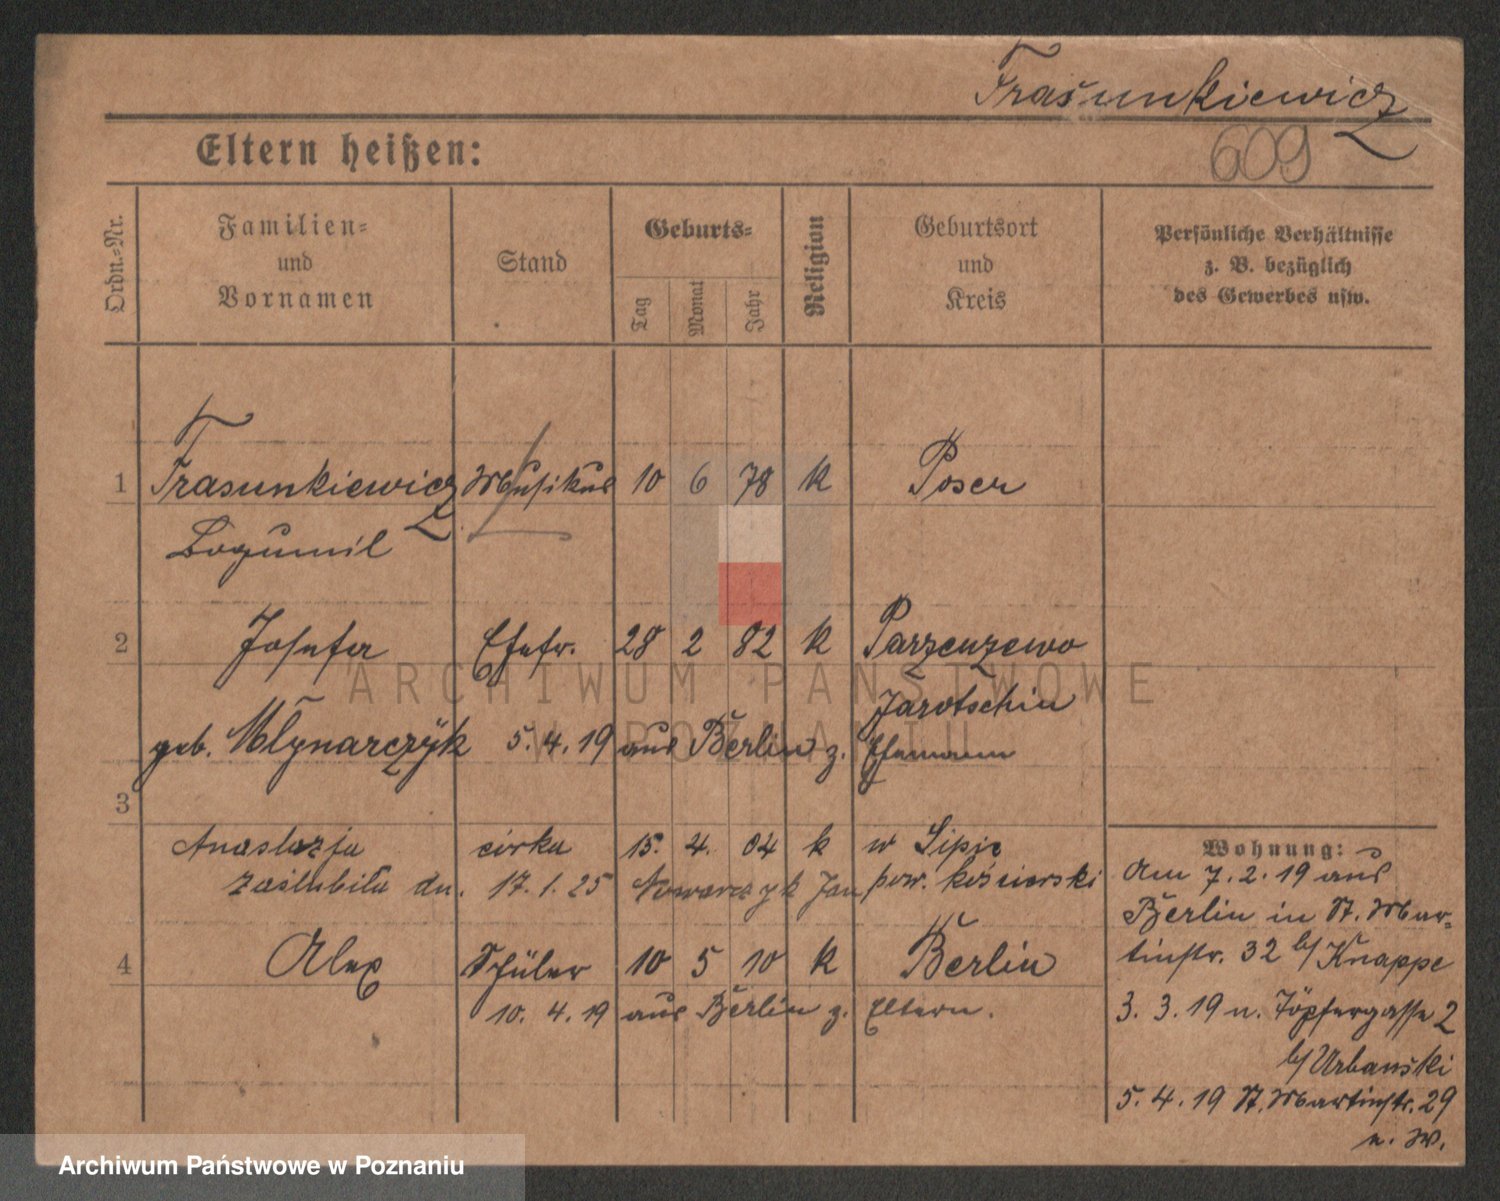 Trasunkiewicz
609
Eltern heißen:
Ordn.-Nr.
Familien-
und
Vornamen
Stand
Geburts-
Tag
Monat
Jahr
Religion
Geburtsort
und
Kreis
Persönliche Verhältnisse
z. B. bezüglich
des Gewerbes usw.
1 Trasunkiewicz Musikus 10 6 78 k Posen
Bogumil
2 Josefa Ehefr. 28 2 82 k Parzenzewo
Jarotschin
geb. Mlynarczyk 5. 4. 19 aus Berlin z. Ehemann
3
Anastazja córka 15. 4. 04 k w Lipie
zaślubiła dn. 17. 1. 25 Nowarczyk Jan pow. kościerski
4 Alex Schüler 10 5 10 k Berlin
10. 4. 19 aus Berlin z. Eltern.
Wohnung:
Am 7. 2. 19 aus
Berlin in St. Mar-
tinstr. 32 b/ Knappe
3. 3. 19 n. Töpfergasse 2
b/ Urbanski
5. 4. 19 St. Martinstr. 29
n. W.
ARCHIWUM PAŃSTWOWE
W POZNANIU
Archiwum Państwowe w Poznaniu